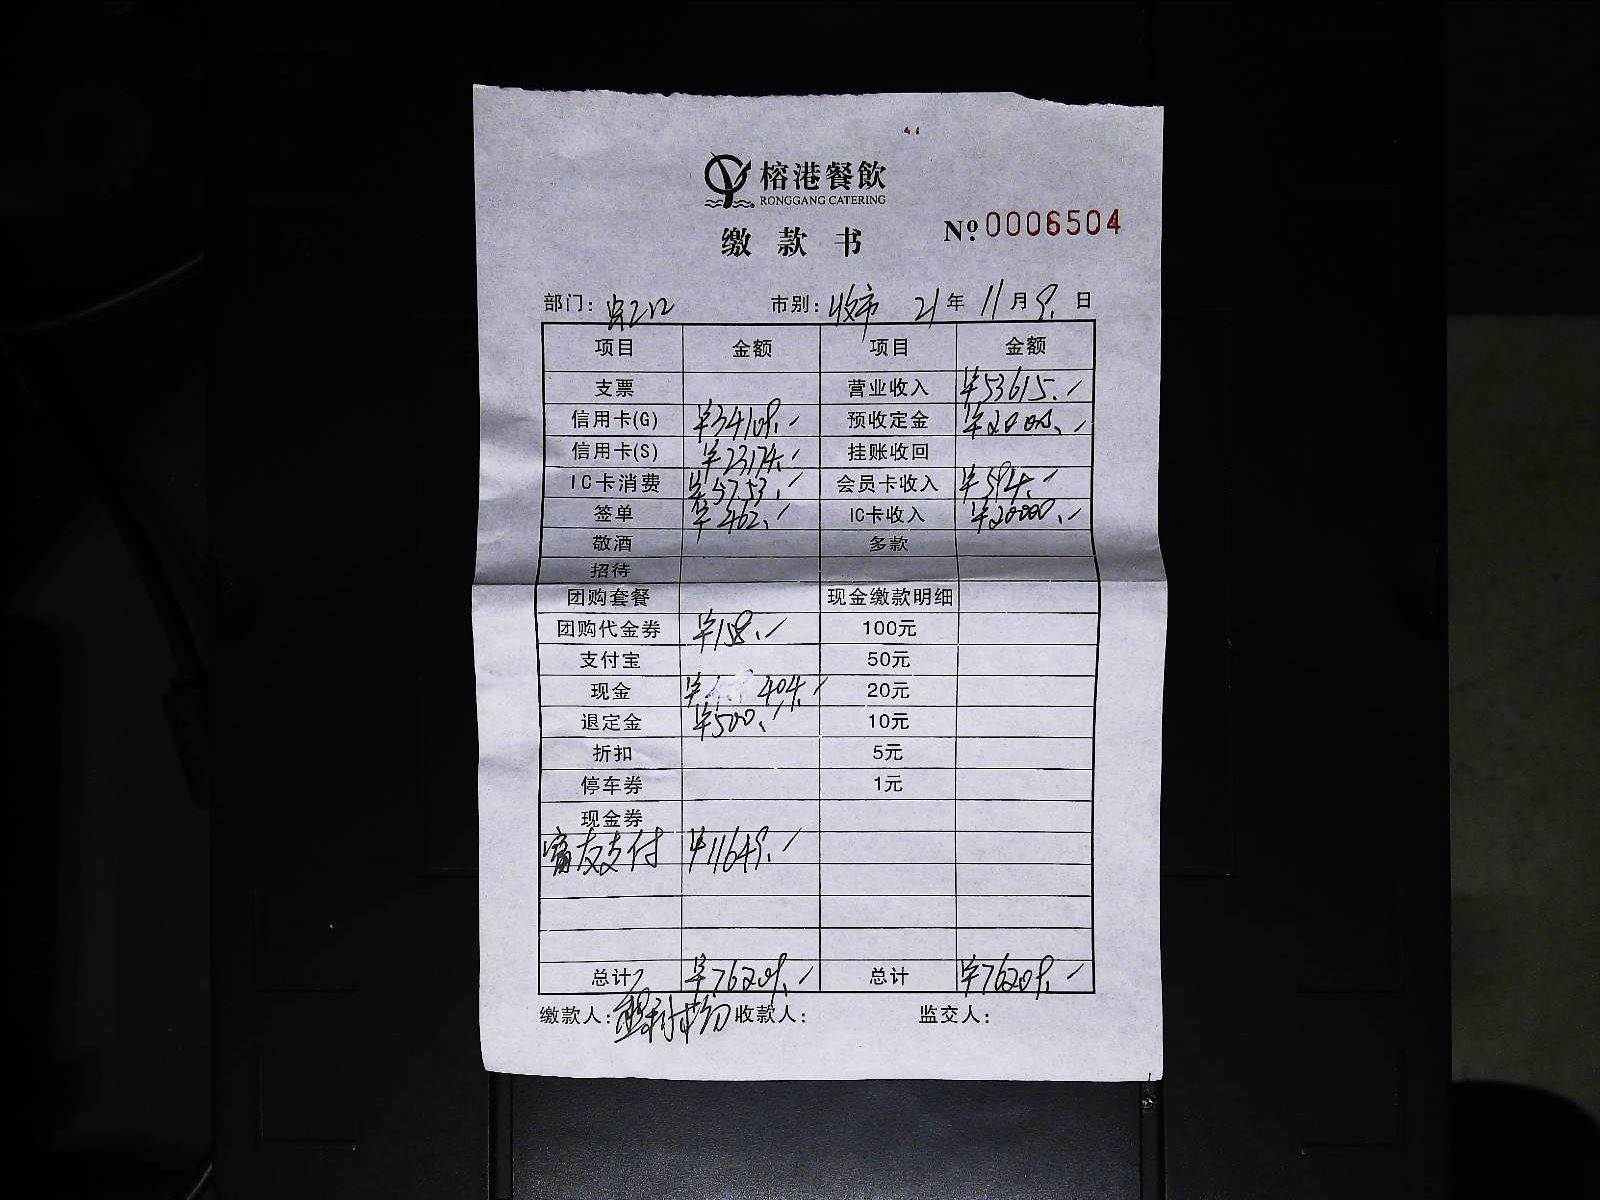 榕港餐飲
RONGGANG CATERING
缴款书
Nº 0006504
部门: 市别: 收市 21年 11月 9日
项目 金额 项目 金额
支票 营业收入 ¥53615.-
信用卡(G) ¥34109.- 预收定金 ¥2000.-
信用卡(S) ¥23174.- 挂账收回
IC卡消费 ¥5753.- 会员卡收入 ¥594.-
签单 ¥462.- IC卡收入 ¥20000.-
敬酒 多款
招待
团购套餐 现金缴款明细
团购代金券 ¥158.- 100元
支付宝 50元
现金 ¥ 404.- 20元
退定金 ¥500.- 10元
折扣 5元
停车券 1元
现金券
富友支付 ¥11649.-
总计 ¥76209.- 总计 ¥76209.-
缴款人: 收款人: 监交人: